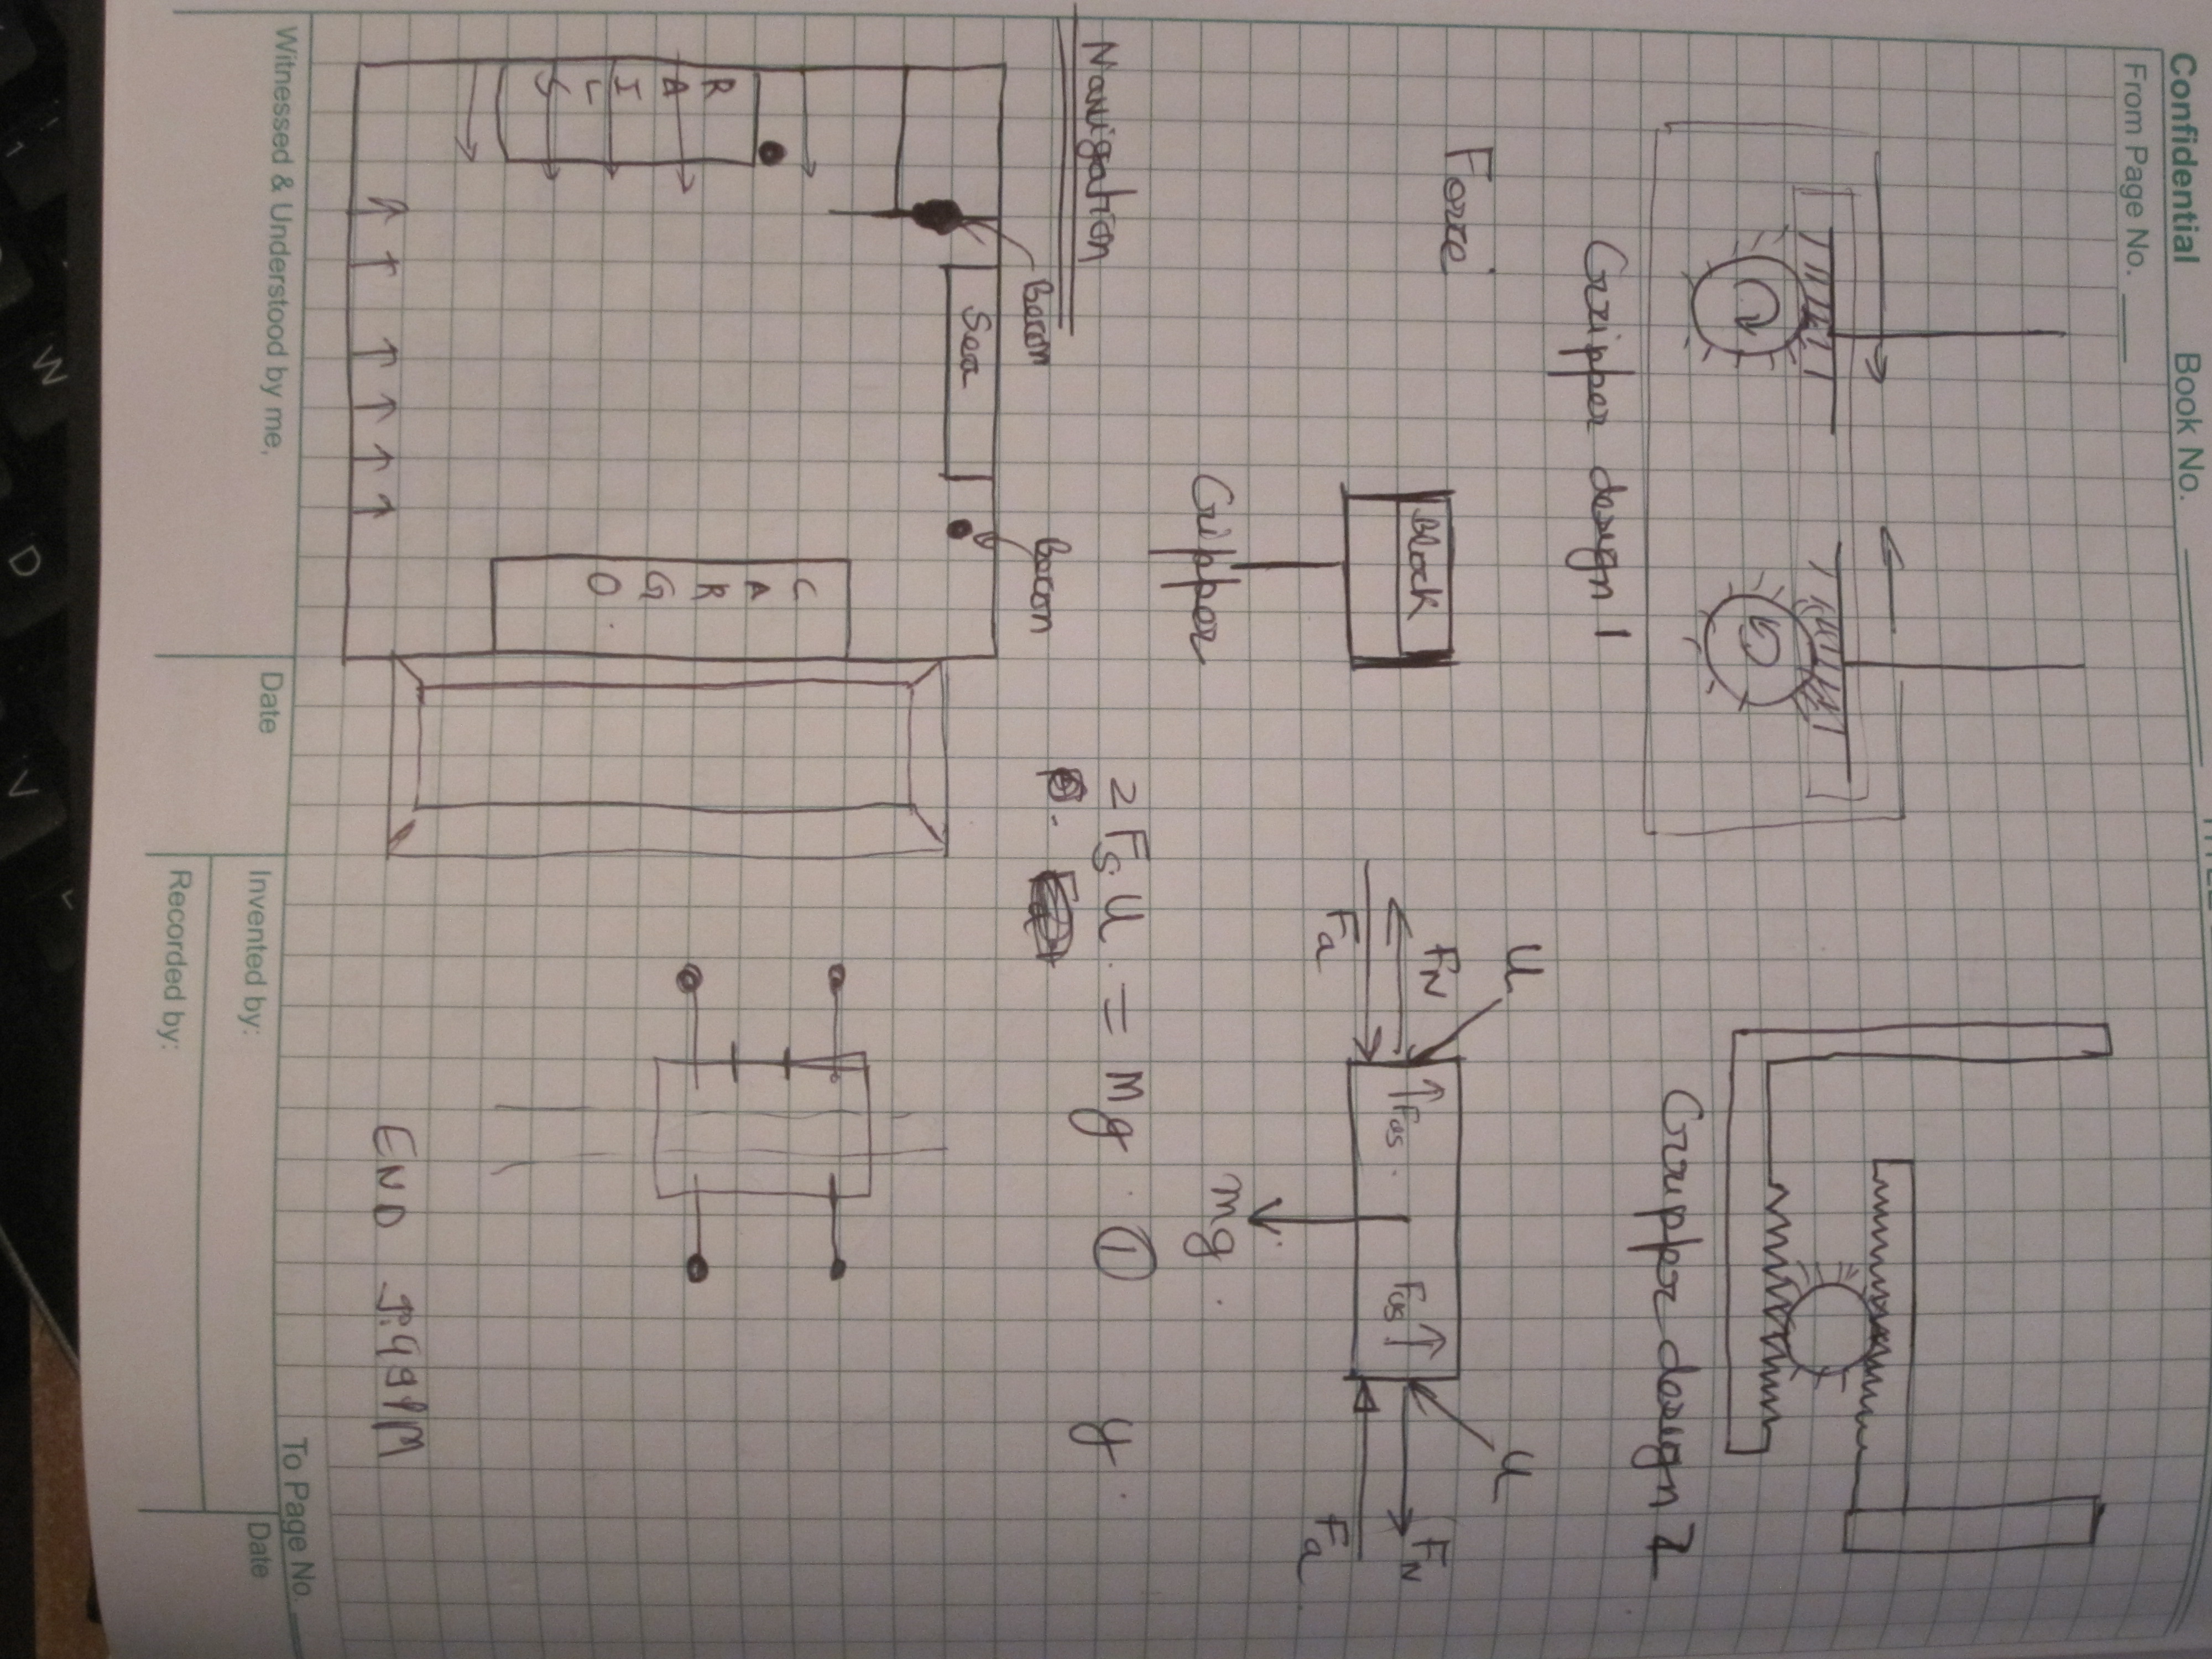 Confidential Book No.
From Page No.
Gripper design 1
Gripper design 2
Force
Block
Gripper
μ μ
FN FN
Fa Fa
mg
2 Fs μ = mg ①
y
Navigation
Becon
Becon
Sea
RAIL
CARGO
END
Witnessed & Understood by me,
Date
Invented by:
Date
Recorded by:
To Page No.
V D W